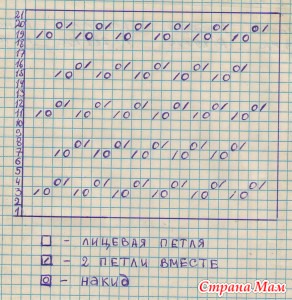 21
20
19
18
17
16
15
14
13
12
11
10
9
8
7
6
5
4
3
2
1
- ЛИЦЕВАЯ ПЕТЛЯ
- 2 ПЕТЛИ ВМЕСТЕ
- накид
Страна Мам